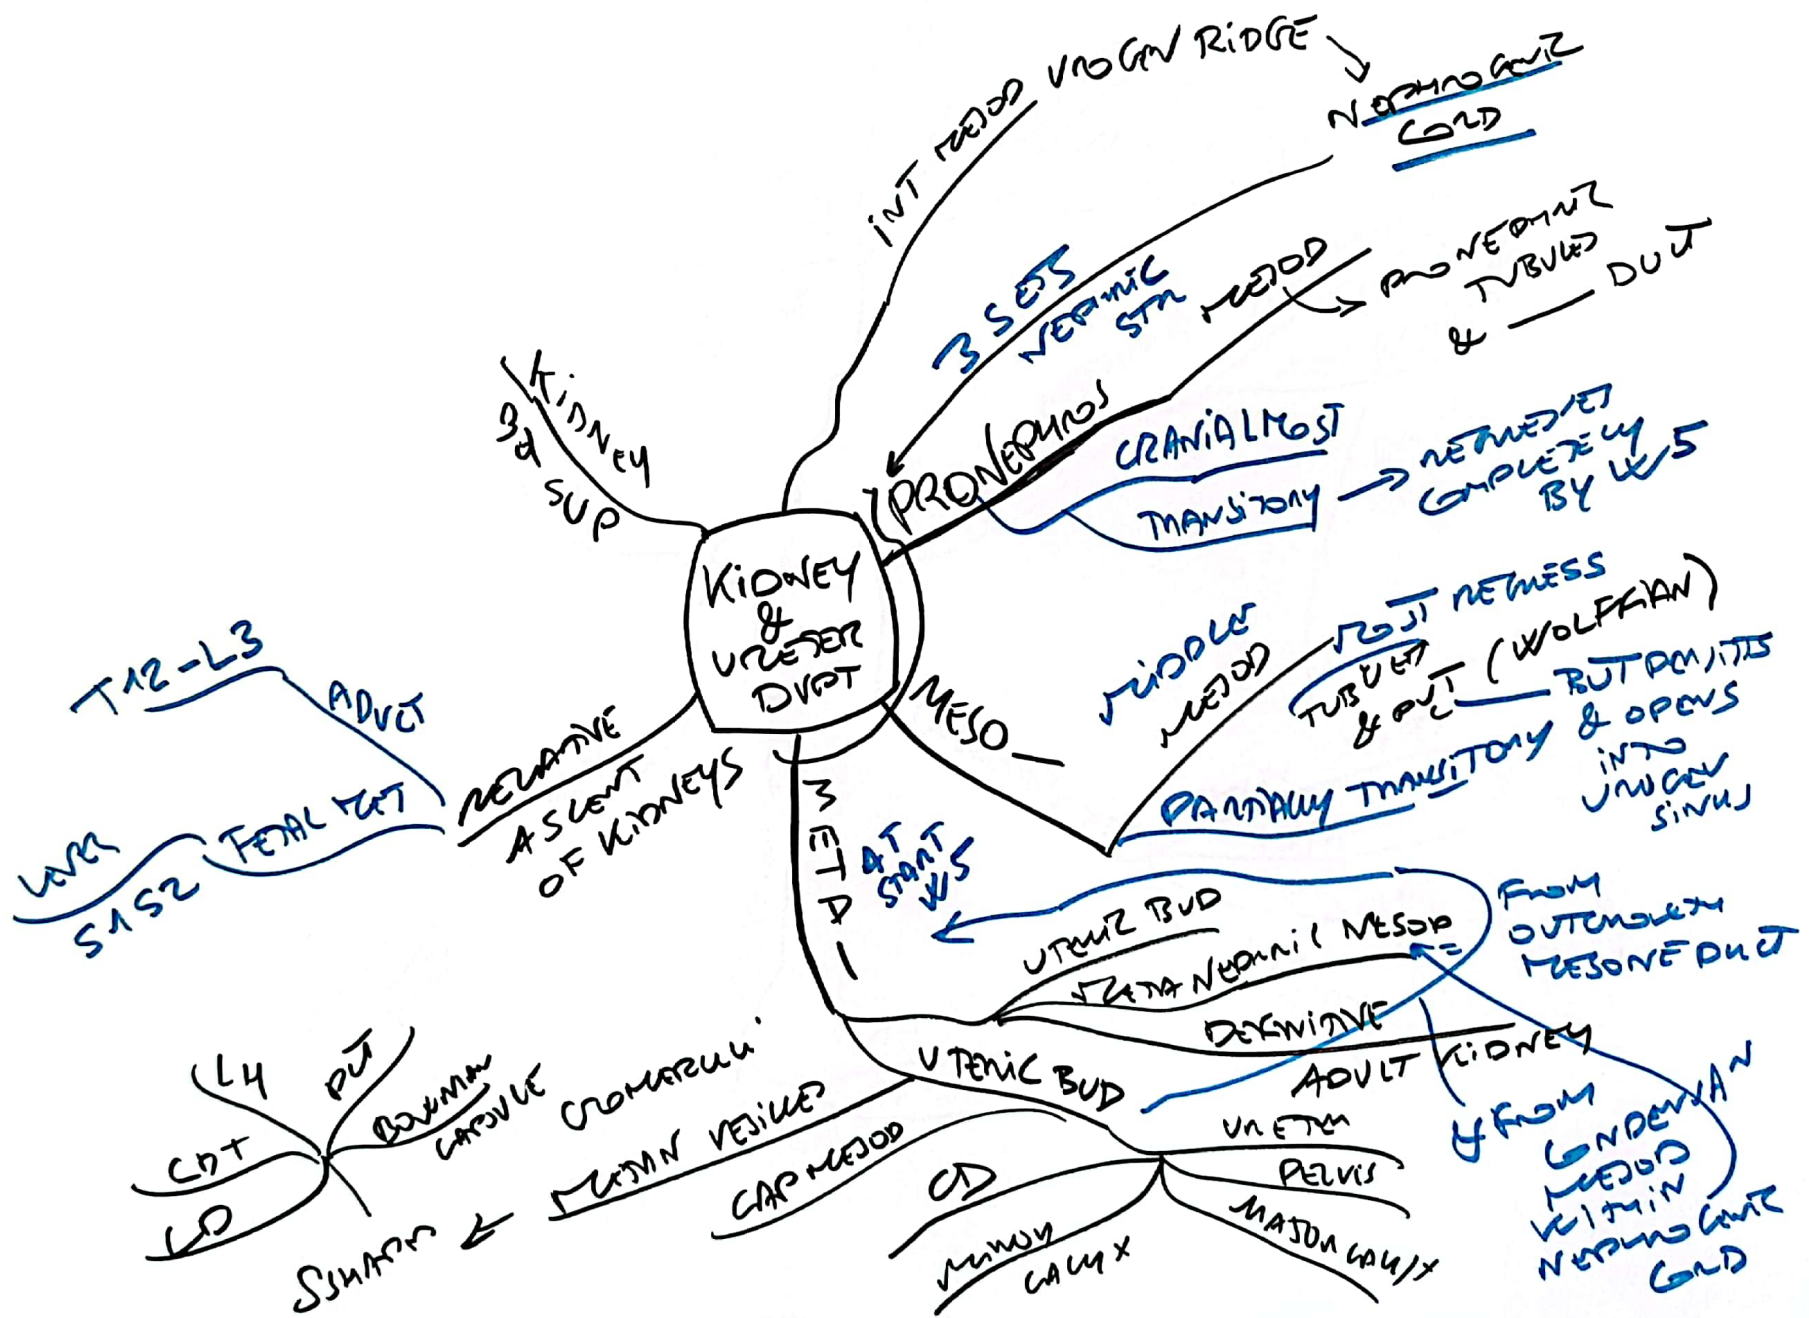 KIDNEY
&
URETER
DVPT
INT MESOD UROGEN RIDGE
NEPHROGENIC
CORD
3 SETS
NEPHRIC
STR
PRONEPHROS
MESOD
PRONEPHRIC
TUBULES
& — DUCT
CRANIALMOST
TRANSITORY
REGRESSES
COMPLETELY
BY W5
MESO —
MIDDLE
MESOD
MOST REGRESS
TUBULES
& DUCT (WOLFFIAN)
BUT PERSISTS
& OPENS
INTO
UROGEN
SINUS
PARTIALLY TRANSITORY
META —
AT
START
W5
URETERIC BUD
METANEPHRIC MESOD
DEFINITIVE
ADULT KIDNEY
FROM
OUTGROWTH
MESONE DUCT
FROM
CONDENSAN
MESOD
WITHIN
NEPHROGENIC
CORD
URETERIC BUD
URETER
PELVIS
MAJOR CALYX
MINOR
CALYX
CD
CAP MESOD
METAN VESICLES
GLOMERULI
S SHAPED
BOWMAN
CAPSULE
PCT
LH
CDT
CD
RELATIVE
ASCENT
OF KIDNEYS
ADULT
T12-L3
FETAL MET
LOWER
S1 S2
KIDNEY
3d
SUP